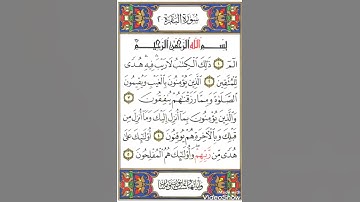 سُورَةُ البَقَرَةِ ٢
بِسْمِ اللَّهِ الرَّحْمَٰنِ الرَّحِيمِ
الٓمٓ ۝١ ذَٰلِكَ الْكِتَابُ لَا رَيْبَ فِيهِ هُدًى
لِّلْمُتَّقِينَ ۝٢ الَّذِينَ يُؤْمِنُونَ بِالْغَيْبِ وَيُقِيمُونَ
الصَّلَوٰةَ وَمِمَّا رَزَقْنَاهُمْ يُنفِقُونَ ۝٣
وَالَّذِينَ يُؤْمِنُونَ بِمَا أُنزِلَ إِلَيْكَ وَمَا أُنزِلَ مِن
قَبْلِكَ وَبِالْآخِرَةِ هُمْ يُوقِنُونَ ۝٤ أُولَٰئِكَ عَلَىٰ
هُدًى مِّن رَّبِّهِمْ وَأُولَٰئِكَ هُمُ الْمُفْلِحُونَ ۝٥
VideoShow